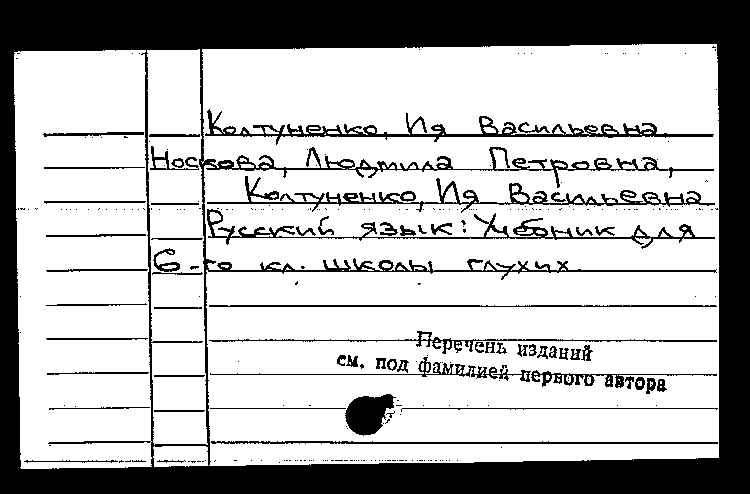 Колтуненко, Ия Васильевна.
Носкова, Людмила Петровна,
Колтуненко, Ия Васильевна
Русский язык: Учебник для
6-го кл. школы глухих.
Перечень изданий
см. под фамилией первого автора